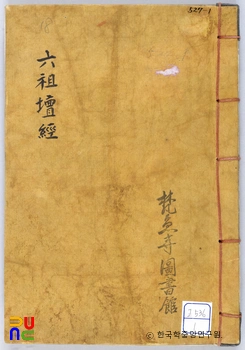 527-1
六祖壇經
梵魚寺圖書館
ⓒ 한국학중앙연구원